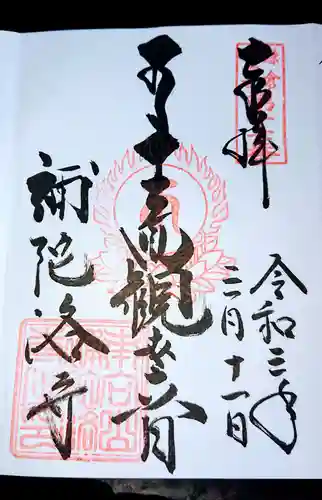 奉拝
令和三年
三月十一日
十一面観世音
補陀洛寺